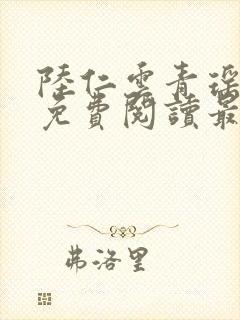 陸仁雲青瑤
免費閱讀最
弗洛里